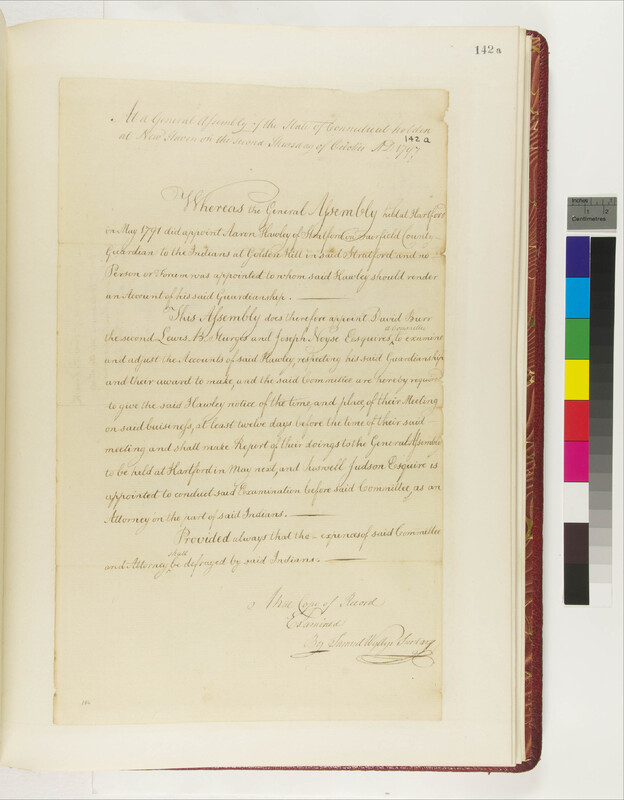 142a
At a General Assembly of the State of Connecticut holden
at New Haven on the second Thursday of October A.D. 1797
142a
Whereas the General Assembly held at Hartford
in May 1791 did appoint Aaron Hawley of Stratford in Fairfield County
Guardian to the Indians at Golden Hill in said Stratford and no
Person or Forum was appointed to whom said Hawley should render
an Account of his said Guardianship.
This Assembly does therefore appoint David Burr
the second Lewis. B. Sturges and Joseph Noyse Esquires, a Committee to examine
and adjust the Accounts of said Hawley, respecting his said Guardianship
and their award to make, and the said Committee are hereby required
to give the said Hawley notice of the time, and place, of their Meeting
on said buisiness, at least twelve days before the time of their said
meeting and shall make Report of their doings to the General Assembly
to be held at Hartford in May next, and Judson Esquire is
appointed to conduct said Examination before said Committee, as an
Attorney on the part of said Indians.
Provided always that the expences of said Committee
and Attorney shall be defrayed by said Indians.
A True Copy of Record
Examined
By Samuel Wyllys Secretary
Inches
Centimetres